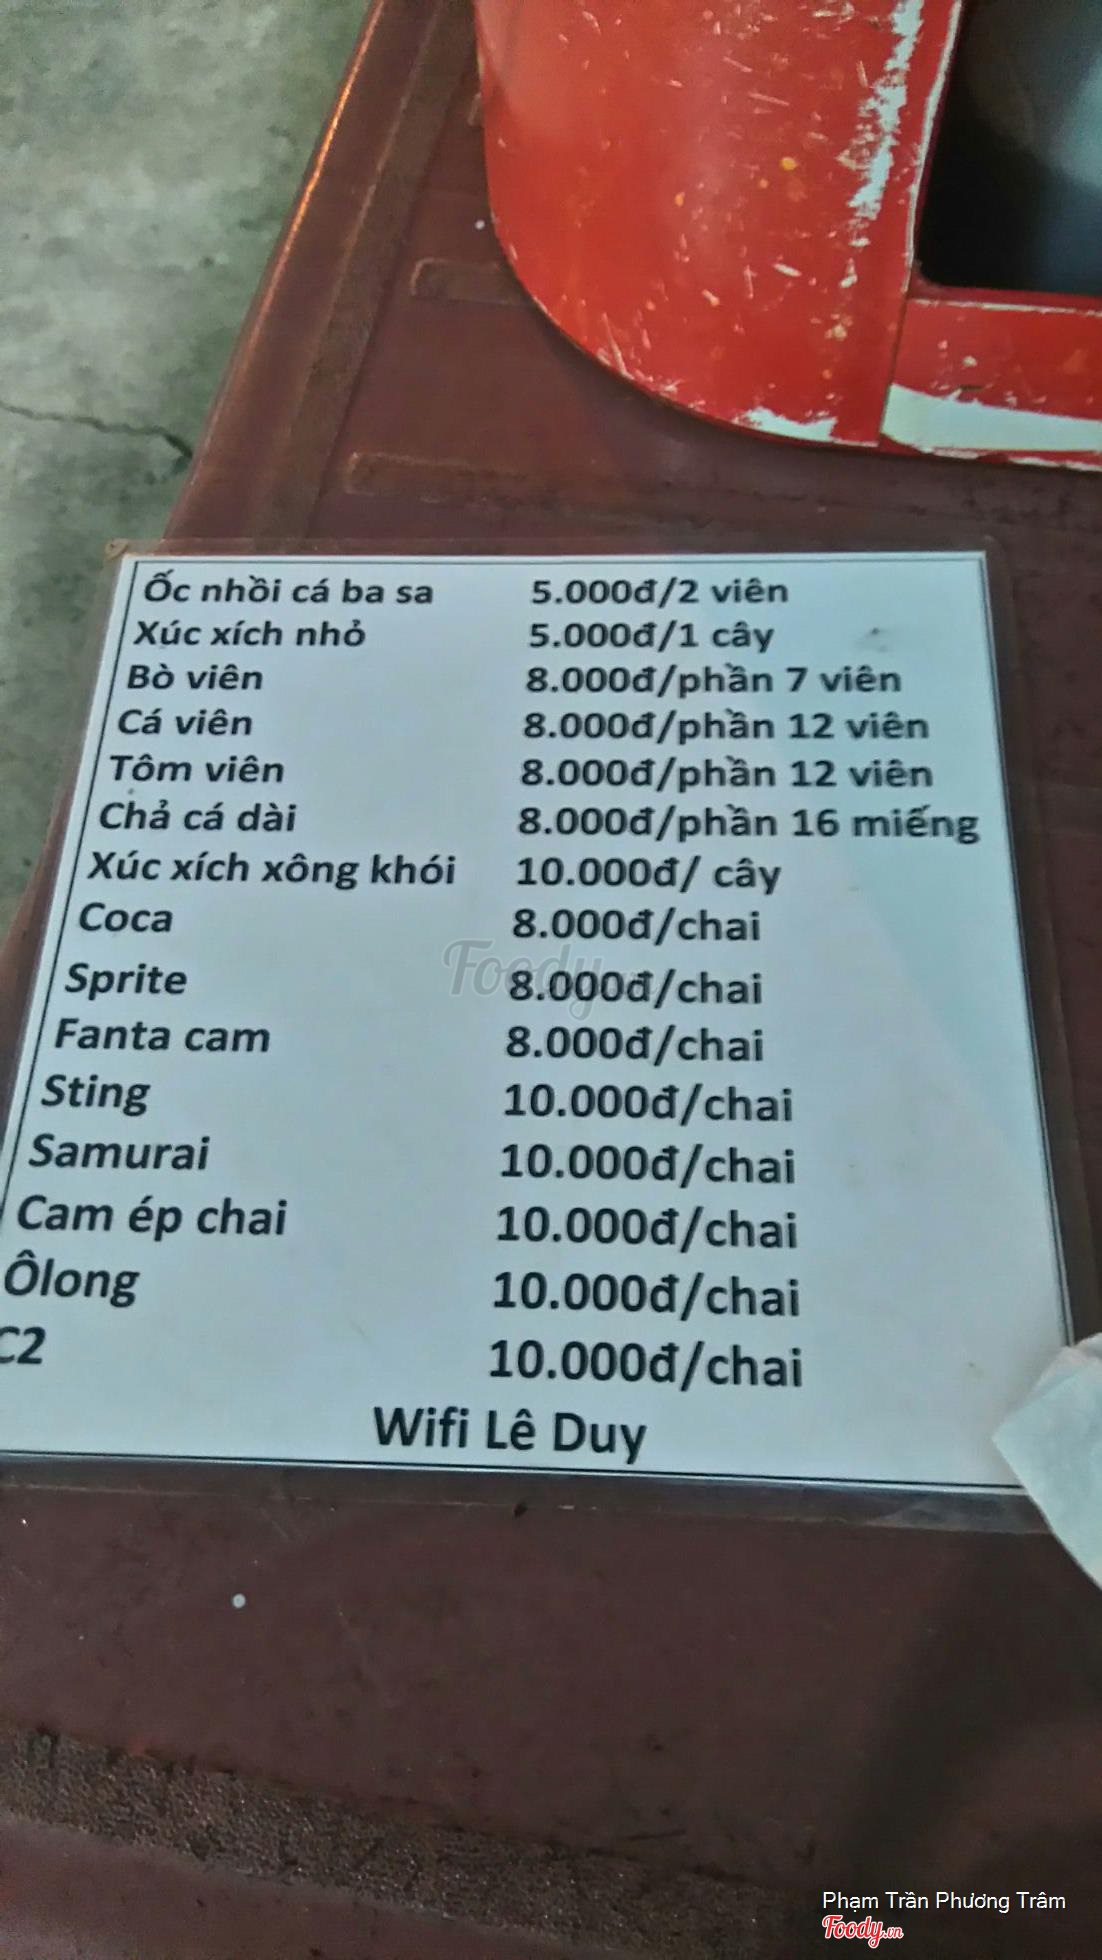 Ốc nhồi cá ba sa 5.000đ/2 viên
Xúc xích nhỏ 5.000đ/1 cây
Bò viên 8.000đ/phần 7 viên
Cá viên 8.000đ/phần 12 viên
Tôm viên 8.000đ/phần 12 viên
Chả cá dài 8.000đ/phần 16 miếng
Xúc xích xông khói 10.000đ/ cây
Coca 8.000đ/chai
Sprite 8.000đ/chai
Fanta cam 8.000đ/chai
Sting 10.000đ/chai
Samurai 10.000đ/chai
Cam ép chai 10.000đ/chai
Ôlong 10.000đ/chai
C2 10.000đ/chai
Wifi Lê Duy
Foody.vn
Phạm Trần Phương Trâm
Foody.vn